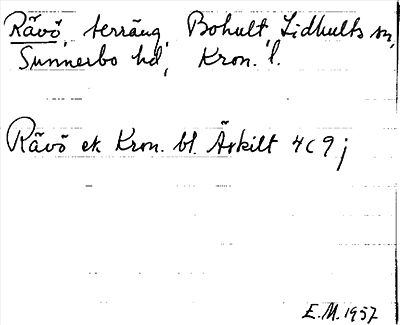 Rävö, terräng, Bohult, Lidhults sn,
Sunnerbo hd, Kron. l.
Rävö ek Kron. bl. Äskilt 4 c 9 j
E.M. 1957